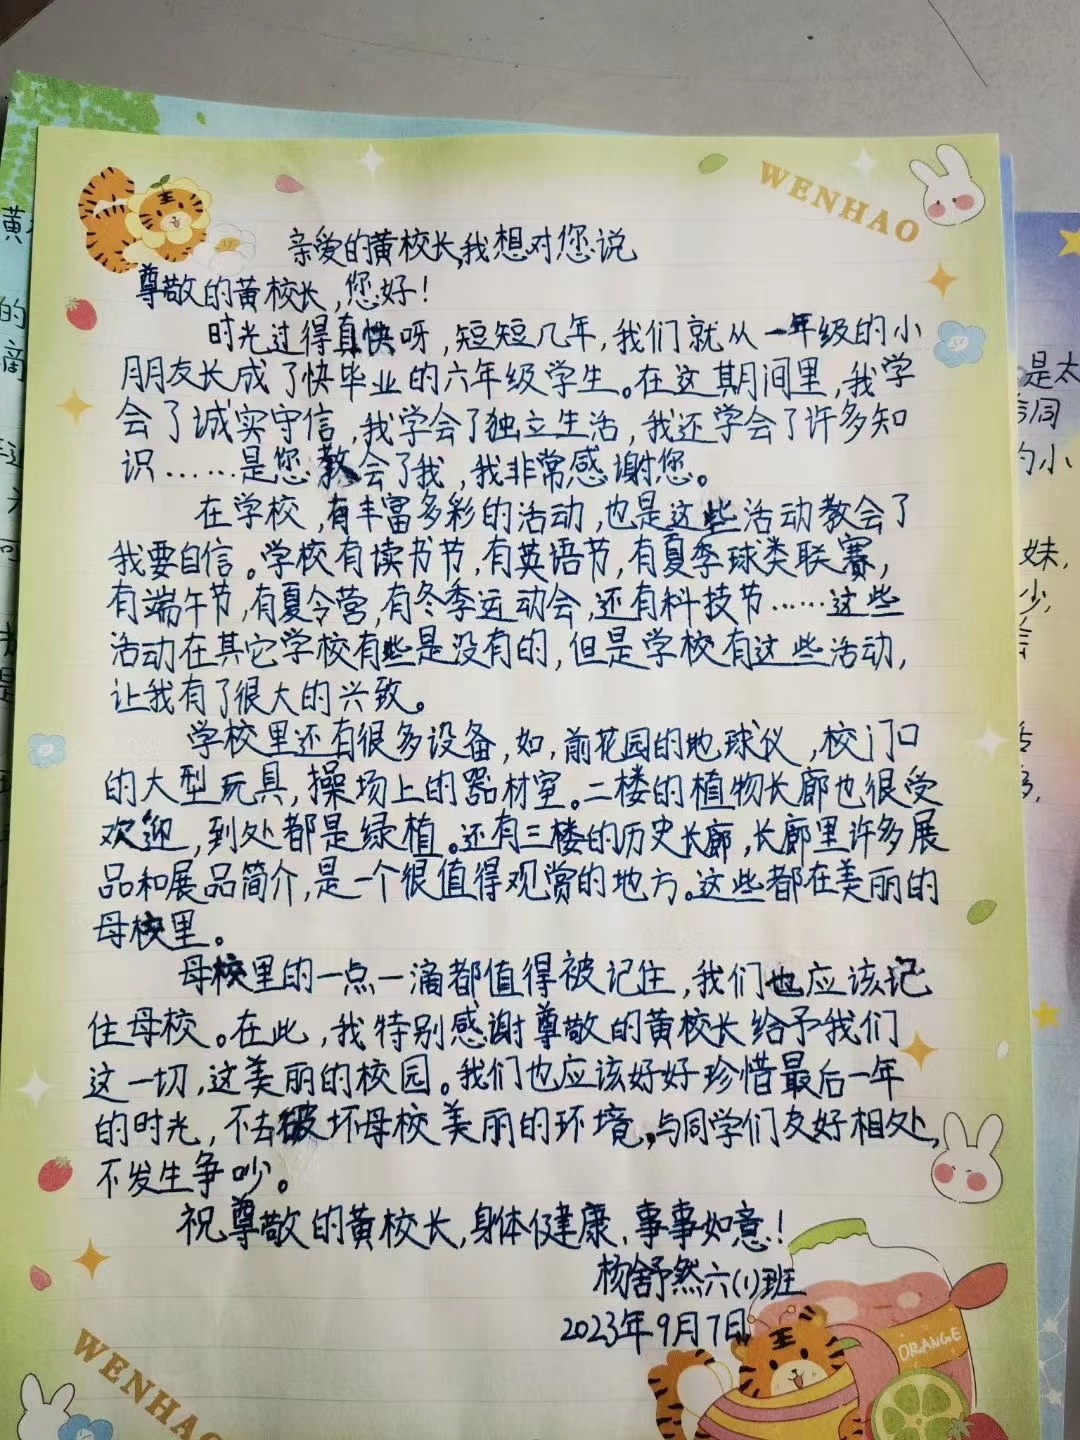 WENHAO
亲爱的黄校长,我想对您说
尊敬的黄校长,您好!
时光过得真快呀,短短几年,我们就从一年级的小
朋友长成了快毕业的六年级学生。在这期间里,我学
会了诚实守信,我学会了独立生活,我还学会了许多知
识……是您教会了我,我非常感谢您。
在学校,有丰富多彩的活动,也是这些活动教会了
我要自信。学校有读书节,有英语节,有夏季球类联赛,
有端午节,有夏令营,有冬季运动会,还有科技节……这些
活动在其它学校有些是没有的,但是学校有这些活动,
让我有了很大的兴致。
学校里还有很多设备,如,前花园的地球仪,校门口
的大型玩具,操场上的器材室。二楼的植物长廊也很受
欢迎,到处都是绿植。还有三楼的历史长廊,长廊里许多展
品和展品简介,是一个很值得观赏的地方。这些都在美丽的
母校里。
母校里的一点一滴都值得被记住,我们也应该记
住母校。在此,我特别感谢尊敬的黄校长给予我们
这一切,这美丽的校园。我们也应该好好珍惜最后一年
的时光,不去破坏母校美丽的环境,与同学们友好相处,
不发生争吵。
祝尊敬的黄校长,身体健康,事事如意!
杨舒然六(1)班
2023年9月7日
ORANGE
WENHAO